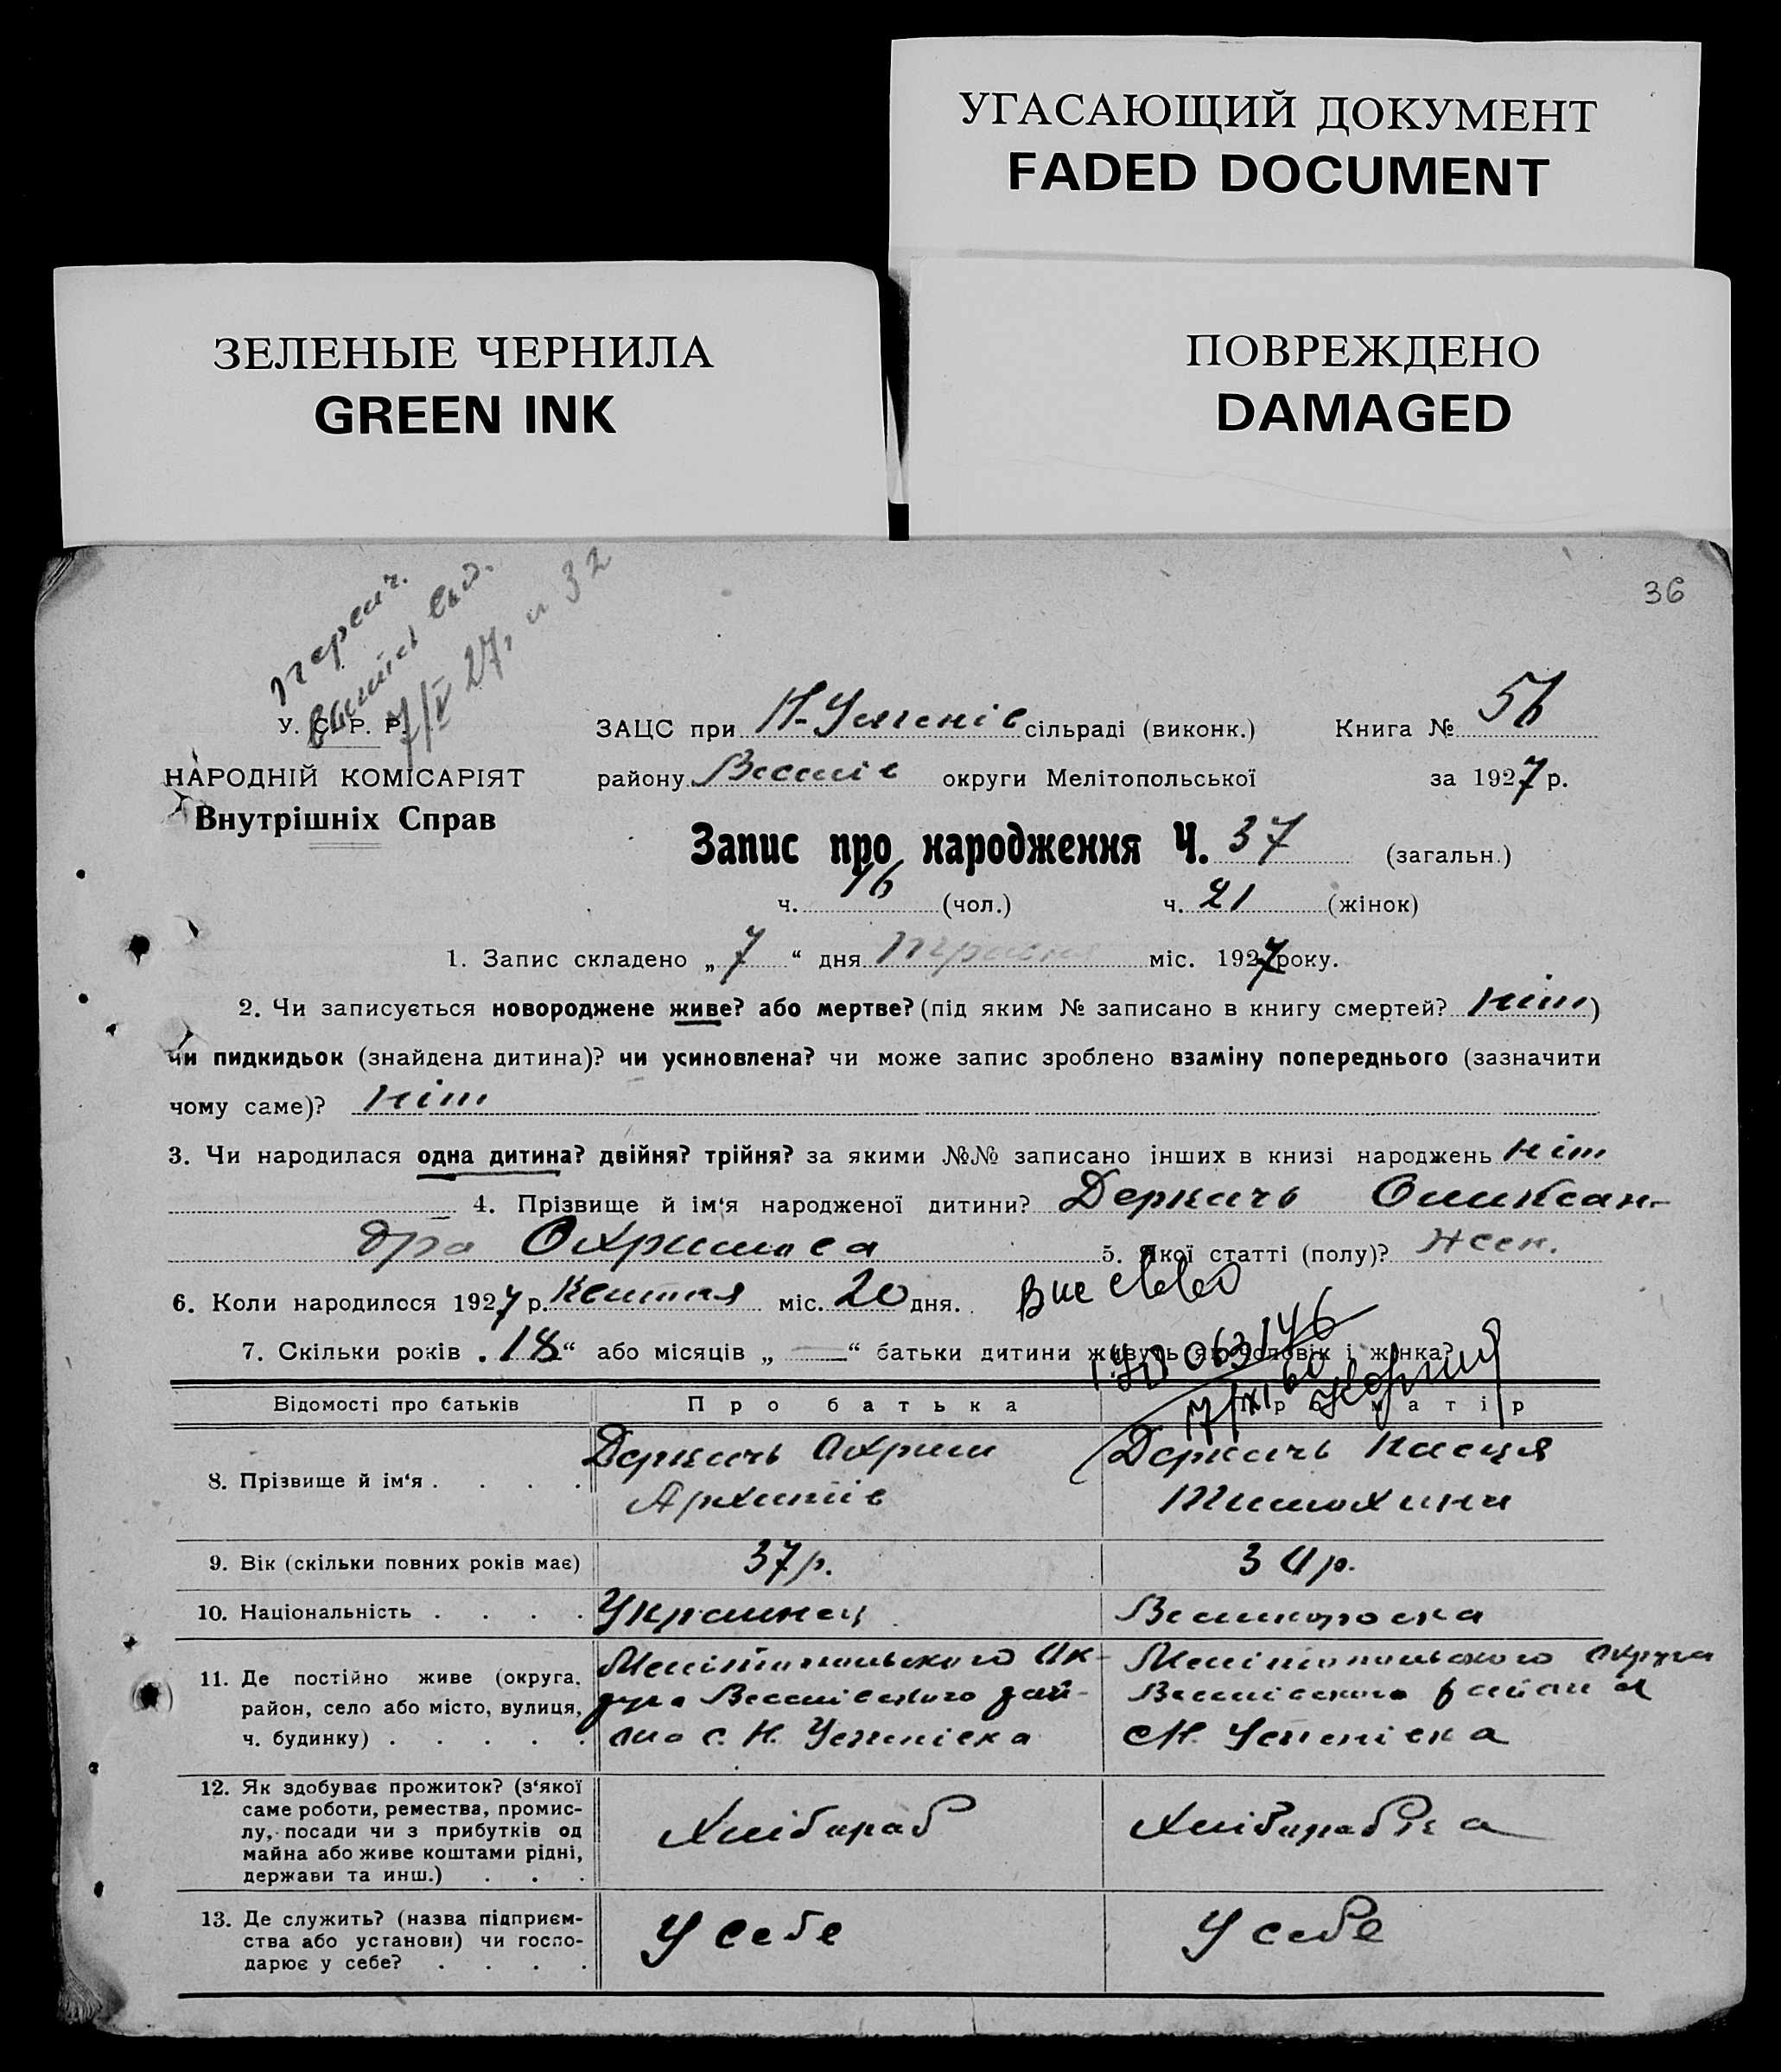 УГАСАЮЩИЙ ДОКУМЕНТ
FADED DOCUMENT
ЗЕЛЕНЫЕ ЧЕРНИЛА
GREEN INK
ПОВРЕЖДЕНО
DAMAGED
36
7/V 27, 32
У. С. Р. Р.
НАРОДНІЙ КОМІСАРІЯТ
Внутрішніх Справ
ЗАЦС при Н-Успенів сільраді (виконк.) Книга № 56
району Веселів округи Мелітопольської за 1927 р.
Запис про народження Ч. 37 (загальн.)
ч. 16 (чол.) ч. 21 (жінок)
1. Запис складено „ 7 “ дня Травня міс. 1927 року.
2. Чи записується новороджене живе? або мертве? (під яким № записано в книгу смертей? ніт)
чи пидкидьок (знайдена дитина)? чи усиновлена? чи може запис зроблено взаміну попереднього (зазначити
чому саме)? ніт
3. Чи народилася одна дитина? двійня? трійня? за якими №№ записано інших в книзі народжень ніт
4. Прізвище й ім‘я народженої дитини? Деркачь Оликсан-
дра Охримова 5. Якої статті (полу)? Жен.
6. Коли народилося 1927 р. Квитня міс. 20 дня.
7. Скільки років „ 18 “ або місяців „ — “ батьки дитини живуть як чоловік і жінка?
17/XI 60
Відомості про батьків Про батька Про матір
8. Прізвище й ім‘я . . . . Деркачь Охрим Деркачь Насця
Архипів Тимохина
9. Вік (скільки повних років має) 37 р. 34 р.
10. Національність . . . . Украинец Великороска
11. Де постійно живе (округа, Мелітопольского Ок- Мелітопольского Округа
район, село або місто, вулиця, руга Веселівского рай- Веселівского района
ч. будинку) . . . . . она с. Н. Успенівка с Н. Успенівка
12. Як здобуває прожиток? (з‘якої
саме роботи, ремества, промис-
лу, посади чи з прибутків од Хлібораб Хліборабка
майна або живе коштами рідні,
держави та инш.) . . .
13. Де служить? (назва підприєм-
ства або установи) чи госпо- У себе У себе
дарює у себе? . . . .